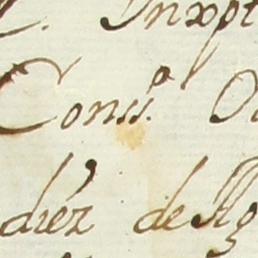 Inxpt
Conss.º O
diez de Ag